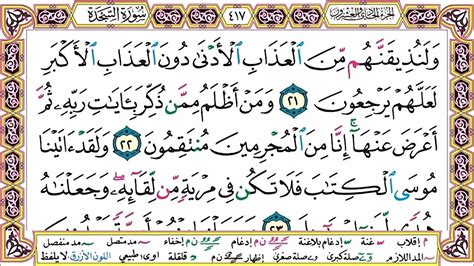 الجزء الحادي والعشرون
٤١٧
سورة السجدة
وَلَنُذِيقَنَّهُم مِّنَ ٱلْعَذَابِ ٱلْأَدْنَىٰ دُونَ ٱلْعَذَابِ ٱلْأَكْبَرِ
لَعَلَّهُمْ يَرْجِعُونَ ٢١ وَمَنْ أَظْلَمُ مِمَّن ذُكِّرَ بِـَٔايَٰتِ رَبِّهِۦ ثُمَّ
أَعْرَضَ عَنْهَآ ۚ إِنَّا مِنَ ٱلْمُجْرِمِينَ مُنتَقِمُونَ ٢٢ وَلَقَدْ ءَاتَيْنَا
مُوسَى ٱلْكِتَٰبَ فَلَا تَكُن فِى مِرْيَةٍ مِّن لِّقَآئِهِۦ ۖ وَجَعَلْنَٰهُ
م إقلاب غنة إدغام بلاغنة ن م إدغام ن م إخفاء مد متصل مد منفصل
المد اللازم مد صلة كبرى مد صلة صغرى إظهار ن م قلقلة أوى طبيعي اللون الأزرق لا يلفظ